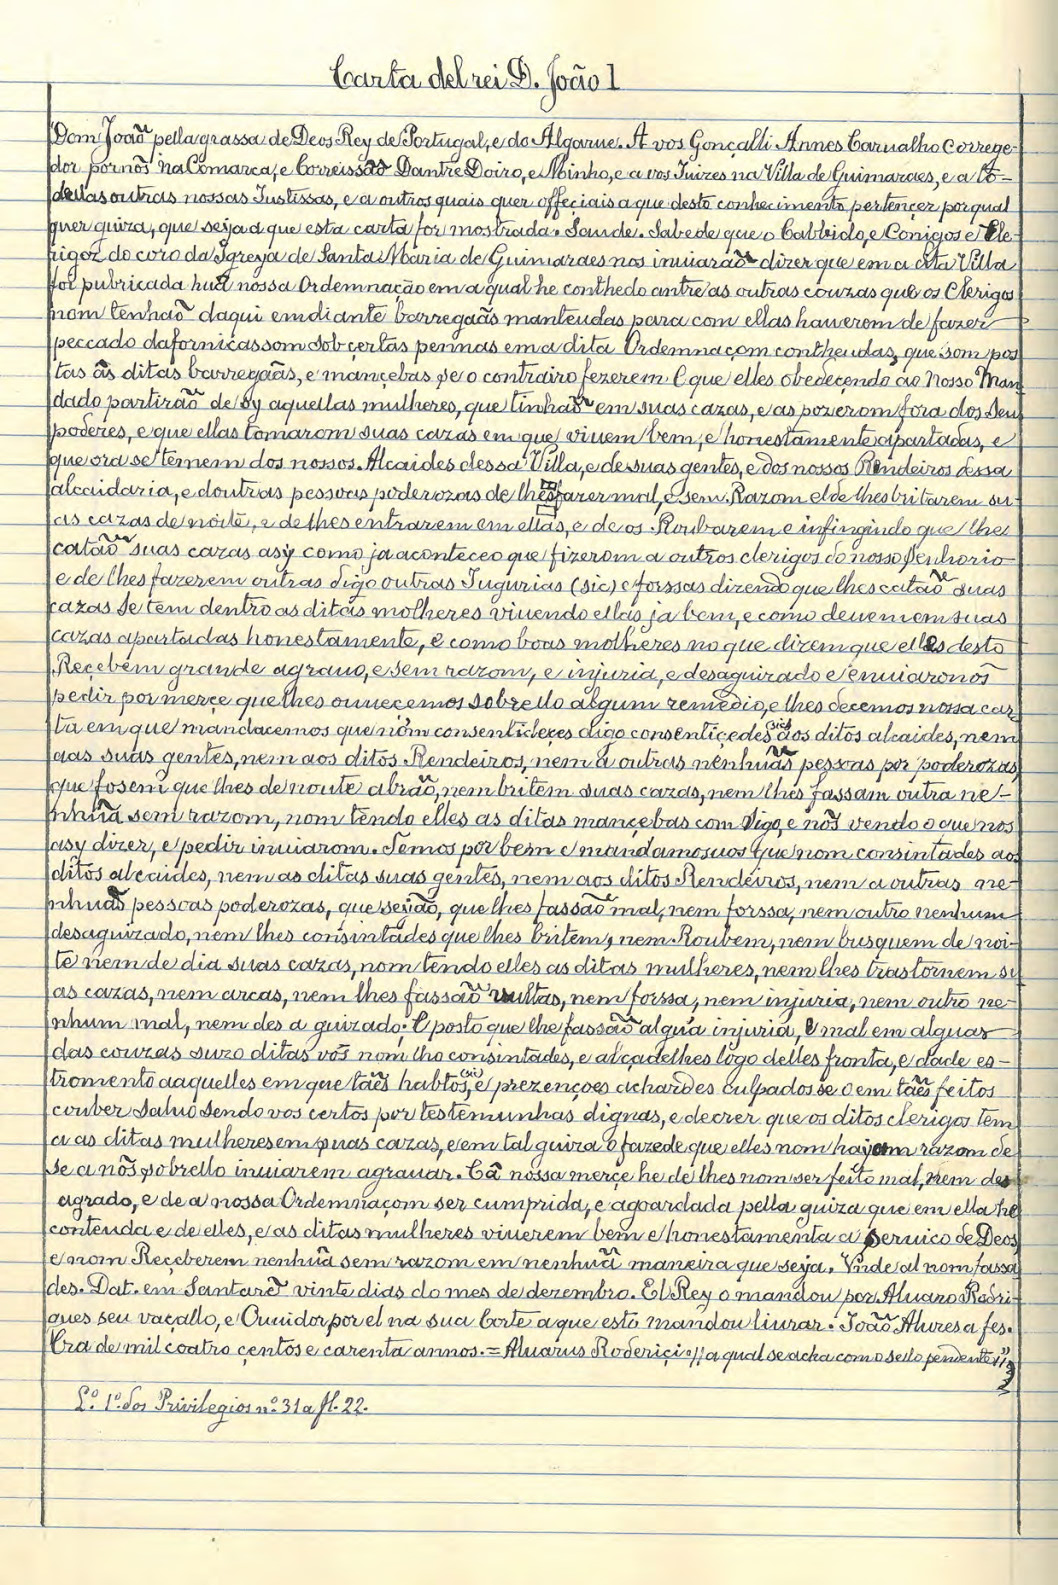 Carta del rei D. João I
"Dom João pella grassa de Deos Rey de Portugal, e do Algarue. A vos Gonçalli Annes Carualho Correge-
dor por nós na Comarca, e Correissão Dantre Doiro, e Minho, e a vos Juizes na Villa de Guimaraes, e a to-
dallas outras nossas Justissas, e a outros quais quer offeçiais a que desto conhecimento pertençer por qual
quer guiza, que seja a que esta carta for mostrada. Saude. Sabede que o Cabbido, e Conigos e Cle-
rigoz do coro da Igreja de Santa Maria de Guimaraes nos inuiarão dizer que em a dita Villa
foi pubricada huã nossa Ordemnação em a qual he conthedo antre as outras couzas que os Clerigos
nom tenhão daqui em diante barregaãs manteudas para com ellas hauerom de fazer
peccado da fornicassom sob çertas pennas em a dita Ordemnaçom contheudas, que som pos
tas ás ditas barregaãs, e mançebas se o contrairo fezerem. E que elles obedeçendo ao Nosso Man
dado partirão de sy aquellas mulheres, que tinhão em suas cazas, e as pozerom fora dos seus
poderes, e que ellas tomarom suas cazas em que viuem bem, e honestamente apartadas, e
que ora se temem dos nossos Alcaides dessa Villa, e de suas gentes, e dos nossos Rendeiros dessa
alcaidaria, e doutras pessoas poderozas de lhes fazer mal, e sem Razom e de lhes britarem su-
as cazas de noite, e de lhes entrarem em ellas, e de os Roubarem e infingindo que lhes
catão suas cazas asy como ja aconteceo que fizerom a outros clerigos do nosso senhorio
e de lhes fazerem outras digo outras Jugurias (sic) e forssas dizendo que lhes catão suas
cazas se tem dentro as ditas molheres viuendo ellas ja bem, e como deuem em suas
cazas apartadas honestamente, e como boas molheres no que dizem que elles desto
Reçebem grande agrauo, e sem razom, e injuria, e desaguizado e enuiaronos
pedir por merçe que lhes ouuecemos sobrello algum remedio, e lhes decemos nossa car
ta em que mandacemos que nom consentideçes digo consentiçedes (sic) aos ditos alcaides, nem
aas suas gentes, nem aos ditos Rendeiros, nem a outras nenhuãs pessoas por poderozas
que fosem que lhes de noute abrão, nem britem suas cazas, nem lhes fassam outra ne-
nhuã sem razom, nom tendo elles as ditas mançebas com sigo, e nós vendo o que nos
asy dizer, e pedir inuiarom. Temos por bem e mandamosuos que nom consintades aos
ditos alcaides, nem as ditas suas gentes, nem aos ditos Rendeiros, nem a outras ne-
nhuãs pessoas poderozas, que sejão, que lhes fassão mal, nem forssa, nem outro nenhum
desaguizado, nem lhes consintades que lhes britem, nem Roubem, nem busquem de noi-
te nem de dia suas cazas, nom tendo elles as ditas mulheres, nem lhes trastornem su
as cazas, nem arcas, nem lhes fassão vultas, nem forssa, nem injuria, nem outro ne-
nhum mal, nem des a guizado: E posto que lhe fassão alguã injuria, e mal em alguas
das couzas suzo ditas vós nom lho consintades, e alçadelhes logo delles fronta, e dade es-
tromento aaquelles em que tães habtos, (sic) e prezençoes achardes culpados se o em tães feitos
couber saluo sendo vos certos por testemunhas dignas, e decrer que os ditos clerigos tem
a as ditas mulheres em suas cazas, e em tal guiza o fazede que elles nom hajam razom de
se a nós sobrello inuiarem agrauar. Cã nossa merçe he de lhes nom ser feito mal, nem des
agrado, e de a nossa Ordemnaçom ser cumprida, e agoardada pella guiza que em ella he
contenda e de elles, e as ditas mulheres viuerem bem e honestamenta a seruiço de Deos
e nom Reçeberem nenhuã sem razom em nenhuã maneira que seja. Vnde al nom fassa
des. Dat. em Santarē vinte dias do mes de dezembro. El Rey o mandou por Aluaro Rodri-
gues seu vaçallo, e Ouuidor por el na sua Corte a que esto mandou liurar. João Alures a fes.
Era de mil coatro çentos e carenta annos. = Aluarus Roderiçi // a qual se acha com o sello pendente"
L.º 1º dos Privilegios nº 31 a fl. 22.